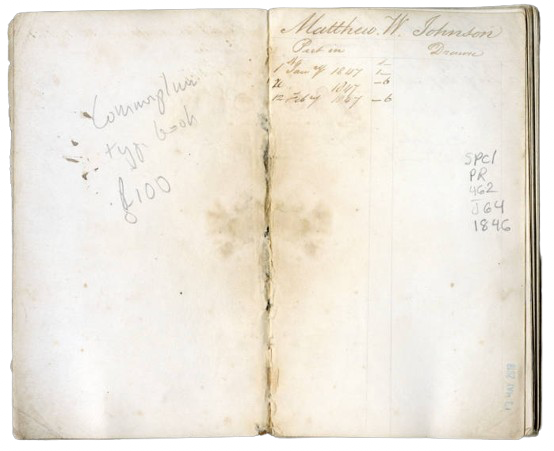 type book
£100
Matthew W. Johnson
Put in
Drawn
Jany 1847
1847 – 6
12 Feby 1847 – 6
SPCl
PR
462
J64
1846